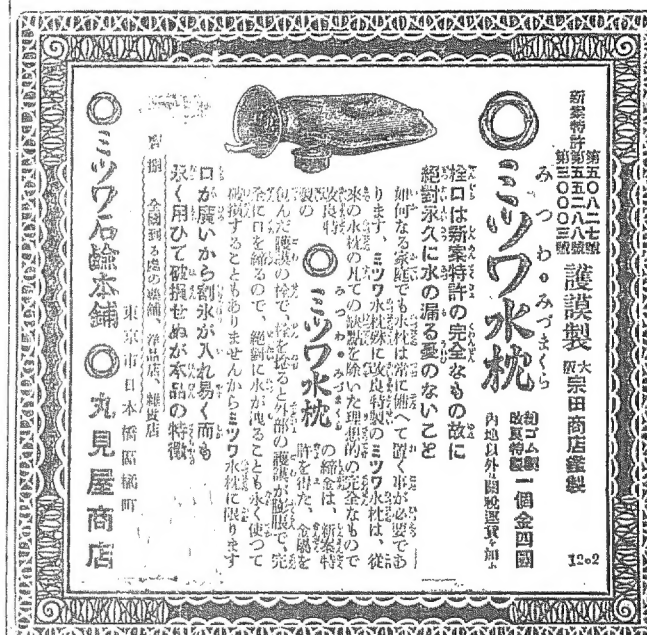 新案特許
第五〇八二七號
第五五二八八號
第三〇〇〇三號
護謨製
大阪 宗田商店鑑製
みつわ・みづまくら
◎ミツワ水枕
純ゴム製
改良特製
一個金四圓
內地以外ハ關稅運賃を加ふ
12●2
栓口は新案特許の完全なもの故に
絕對永久に水の漏る憂のないこと
如何なる家庭でも水枕は常に備へて置く事が必要であ
ります、ミツワ水枕殊に改良特製のミツワ水枕は、從
來の水枕の凡ての缺點を除いた理想的の完全なもので
改良特製の
◎ミツワ水枕
みつわ・みづまくら
の締金は、新案特
許を得た、金屬を
包んだ護謨の栓で、栓を捻ると外部の護謨が膨脹で、完
全に口を締るので、絕對に水が洩ることも永く使つて
破損することもありませんからミツワ水枕に限ります
口が廣いから割氷が入れ易く而も
永く用ひて破損せぬが本品の特徵
全國到る處の藥舖、洋品店、雜貨店
東京市日本橋區橘町
◎ミツワ石鹼本舖 ◎丸見屋商店